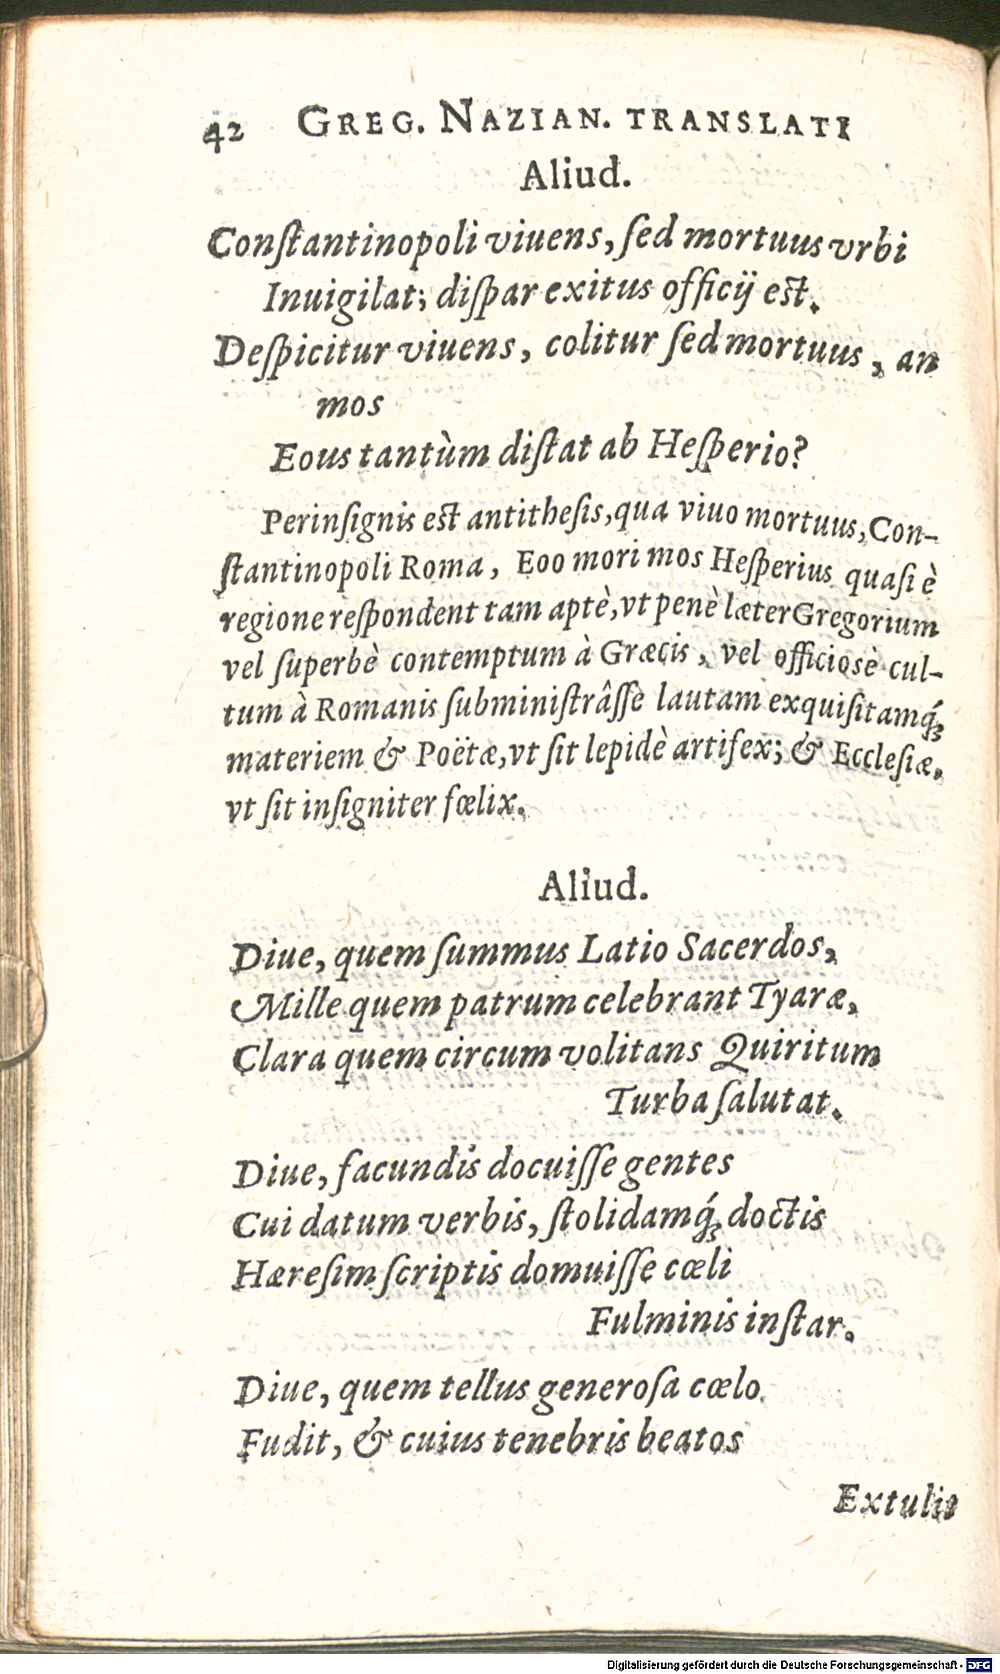 42 GREG. NAZIAN. TRANSLATI
Aliud.
Conſtantinopoli viuens, ſed mortuus vrbi
Inuigilat; diſpar exitus officij eſt.
Deſpicitur viuens, colitur ſed mortuus, an
mos
Eous tantùm diſtat ab Heſperio?
Perinſignis eſt antitheſis, qua viuo mortuus, Con-
ſtantinopoli Roma, Eoo mori mos Heſperius quaſi è
regione reſpondent tam aptè, vt penè læter Gregorium
vel ſuperbè contemptum à Græcis, vel officiosè cul-
tum à Romanis ſubminiſtrâſſe lautam exquiſitamq́;
materiem & Poëtæ, vt ſit lepidè artifex; & Eccleſiæ,
vt ſit inſigniter fœlix.
Aliud.
Diue, quem ſummus Latio Sacerdos,
Mille quem patrum celebrant Tyaræ,
Clara quem circum volitans Quiritum
Turba ſalutat.
Diue, facundis docuiſſe gentes
Cui datum verbis, ſtolidamq́; doctis
Hæreſim ſcriptis domuiſſe cœli
Fulminis inſtar.
Diue, quem tellus generoſa cœlo
Fudit, & cuius tenebris beatos
Extulit
Digitalisierung gefördert durch die Deutsche Forschungsgemeinschaft - DFG